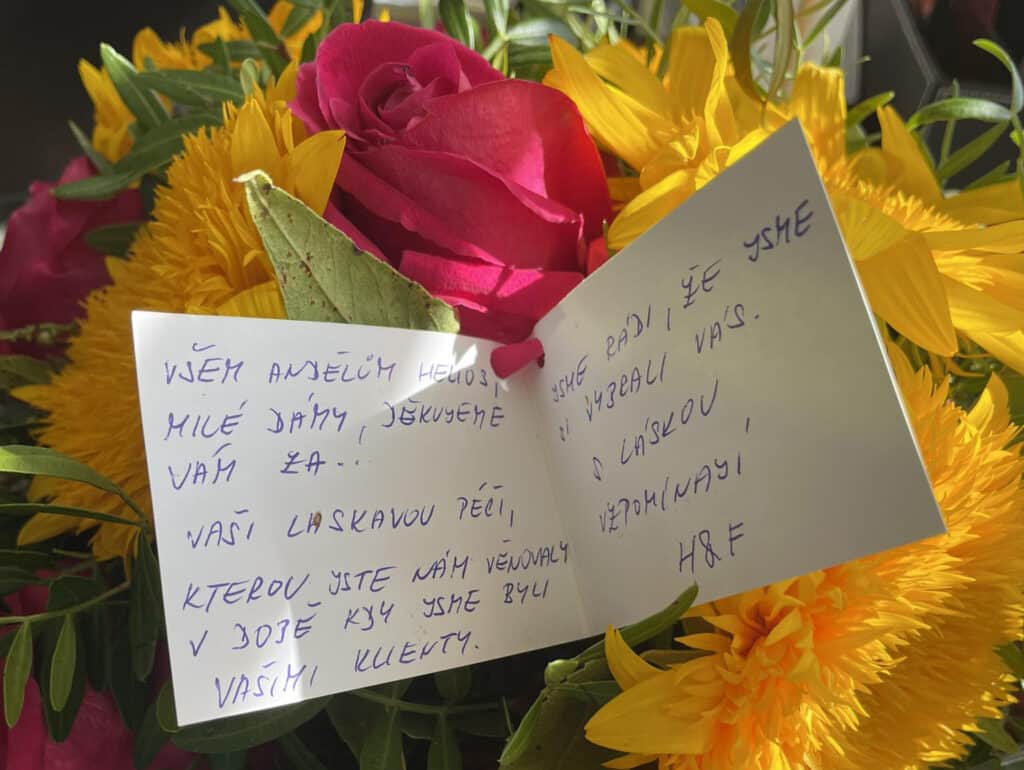 VŠEM ANDĚLŮM HELIOS,
MILÉ DÁMY, DĚKUJEME
VÁM ZA...
VAŠI LASKAVOU PÉČI,
KTEROU JSTE NÁM VĚNOVALY
V DOBĚ KDY JSME BYLI
VAŠIMI KLIENTY.
JSME RÁDI, ŽE JSME
SI VYBRALI VÁS.
S LÁSKOU
VZPOMÍNAJÍ,
H&F